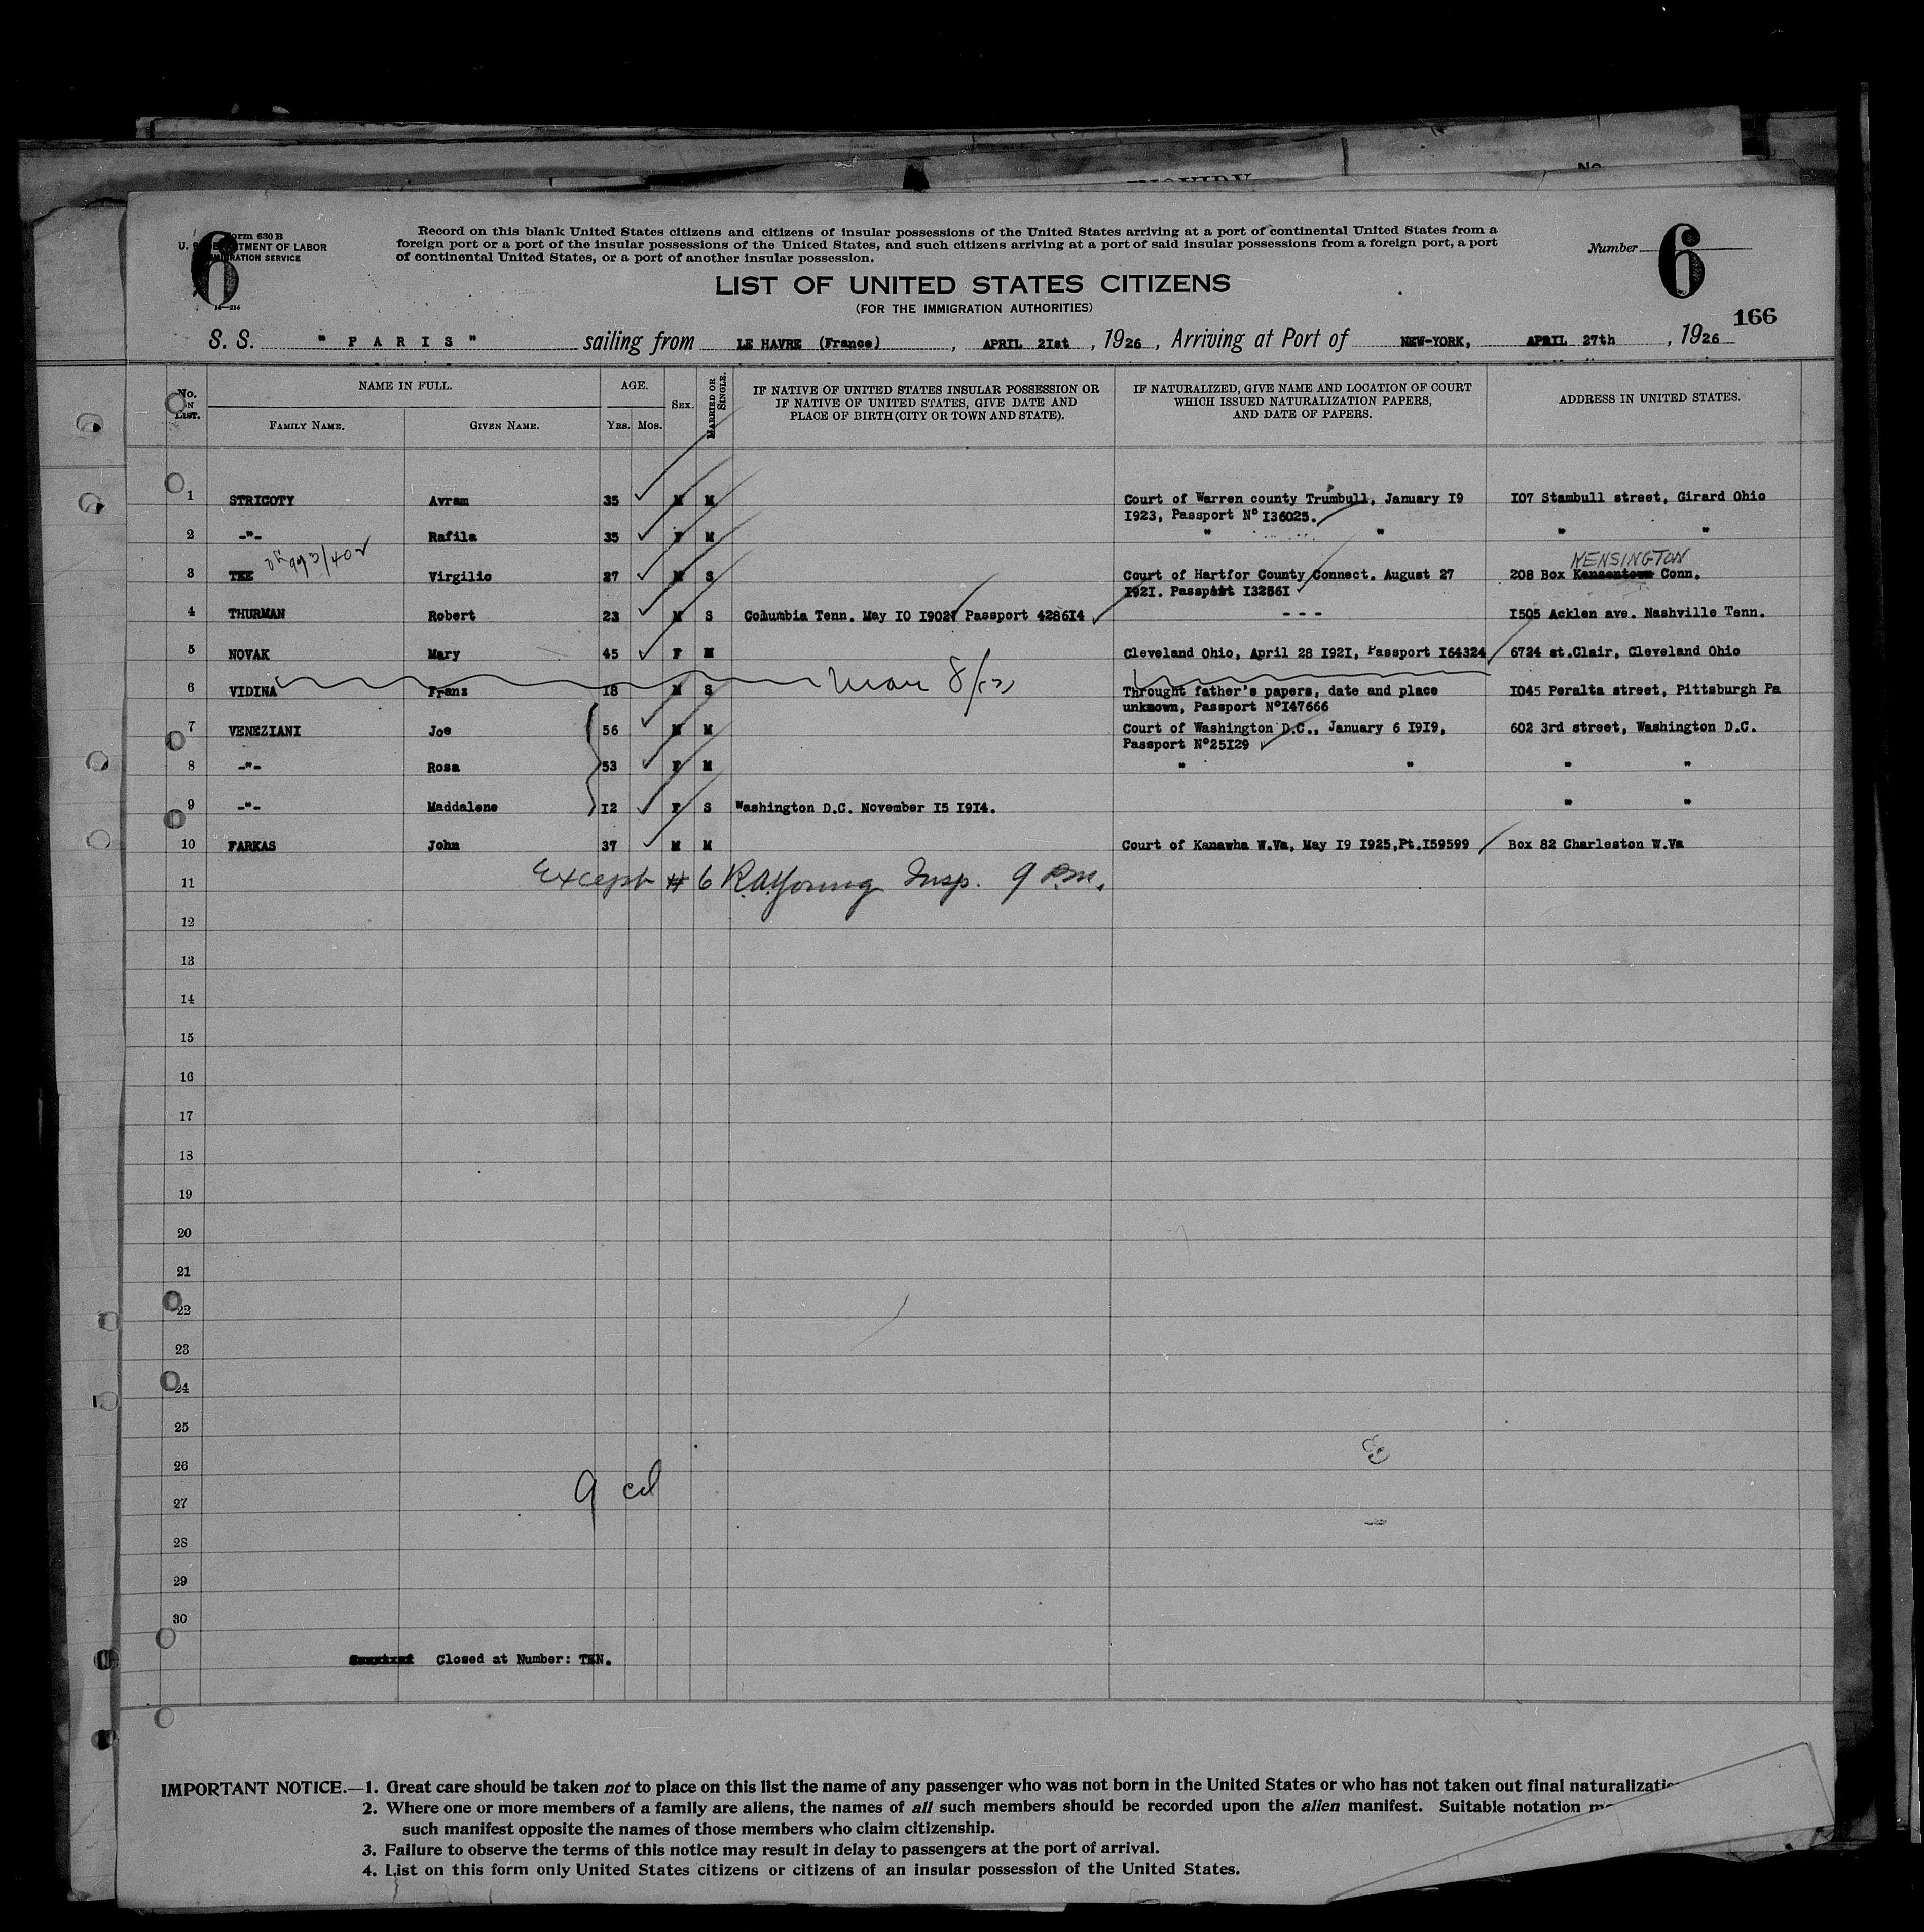 No.
Form 630 B
U. S. DEPARTMENT OF LABOR
IMMIGRATION SERVICE
14—214
6
Record on this blank United States citizens and citizens of insular possessions of the United States arriving at a port of continental United States from a
foreign port or a port of the insular possessions of the United States, and such citizens arriving at a port of said insular possessions from a foreign port, a port
of continental United States, or a port of another insular possession.
Number 6
LIST OF UNITED STATES CITIZENS
(FOR THE IMMIGRATION AUTHORITIES)
166
S. S. " P A R I S " sailing from LE HAVRE (France) , APRIL 2Ist , 1926 , Arriving at Port of NEW-YORK, APRIL 27th , 1926
No. ON LIST. NAME IN FULL. AGE. SEX. MARRIED OR SINGLE. IF NATIVE OF UNITED STATES INSULAR POSSESSION OR IF NATIVE OF UNITED STATES, GIVE DATE AND PLACE OF BIRTH (CITY OR TOWN AND STATE). IF NATURALIZED, GIVE NAME AND LOCATION OF COURT WHICH ISSUED NATURALIZATION PAPERS, AND DATE OF PAPERS. ADDRESS IN UNITED STATES.
FAMILY NAME. GIVEN NAME. YRS. MOS.
1 STRIGOTY Avram 35 M M Court of Warren county Trumbull, January I9 I07 Stambull street, Girard Ohio
I923, Passport N° I36025.
2 -"- Rafila 35 F M " " " "
KENSINGTON
3 TEE Virgilio 27 M S Court of Hartfor County Connect. August 27 208 Box Kensentown Conn.
I92I. Passport I3256I
4 THURMAN Robert 23 M S Columbia Tenn. May IO I902 Passport 4286I4 - - - I505 Acklen ave. Nashville Tenn.
5 NOVAK Mary 45 F M Cleveland Ohio, April 28 I92I, Passport I64324 6724 st.Clair, Cleveland Ohio
6 VIDINA Franz I8 M S Throught father's papers, date and place I045 Peralta street, Pittsburgh Pa
unknown, Passport N°I47666
7 VENEZIANI Joe 56 M M Court of Washington D.C., January 6 I9I9, 602 3rd street, Washington D.C.
Passport N°25I29
8 -"- Rosa 53 F M " " " "
9 -"- Maddalene I2 F S Washington D.C. November I5 I9I4. " "
10 FARKAS John 37 M M Court of Kanawha W.Va, May I9 I925,Pt.I59599 Box 82 Charleston W.Va
11 Except # 6 R.A.Young Insp. 9 P.m.
12
13
14
15
16
17
18
19
20
21
22
23
24
25
26
9 cd
27
28
29
30
Closed at Number: TEN.
IMPORTANT NOTICE.—1. Great care should be taken not to place on this list the name of any passenger who was not born in the United States or who has not taken out final
2. Where one or more members of a family are aliens, the names of all such members should be recorded upon the alien manifest. Suitable notation
such manifest opposite the names of those members who claim citizenship.
3. Failure to observe the terms of this notice may result in delay to passengers at the port of arrival.
4. List on this form only United States citizens or citizens of an insular possession of the United States.